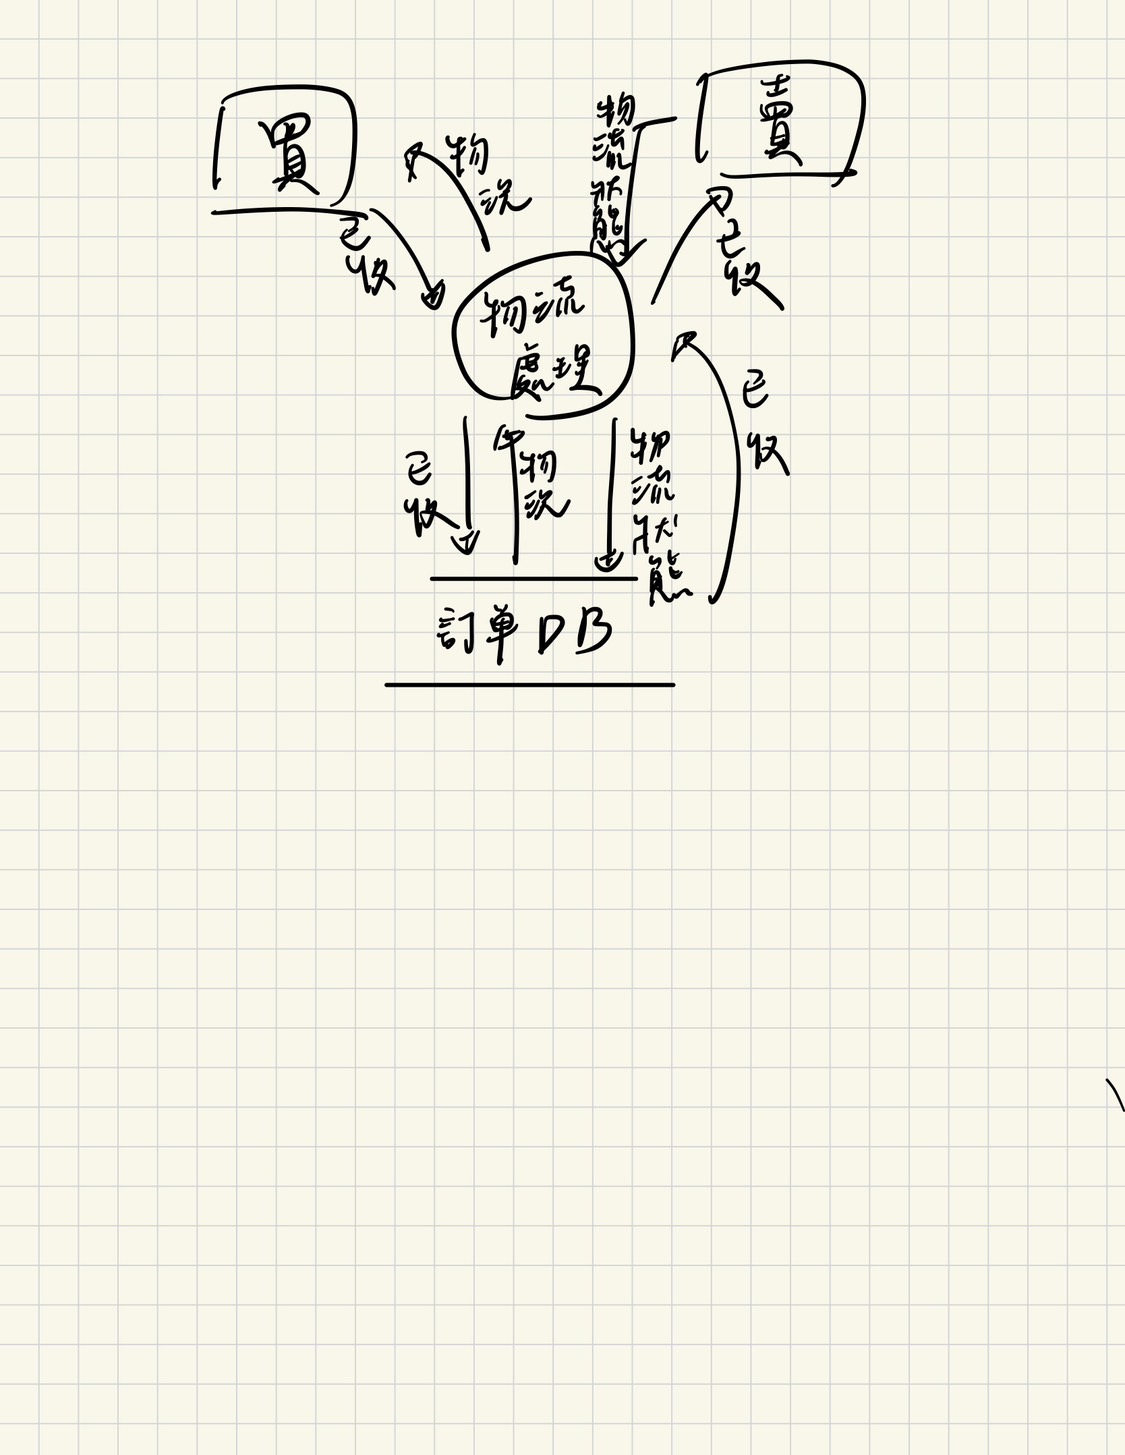 買
賣
物況
物流狀態
已收
已收
物流
處理
已收
物況
物流狀態
已收
訂單DB